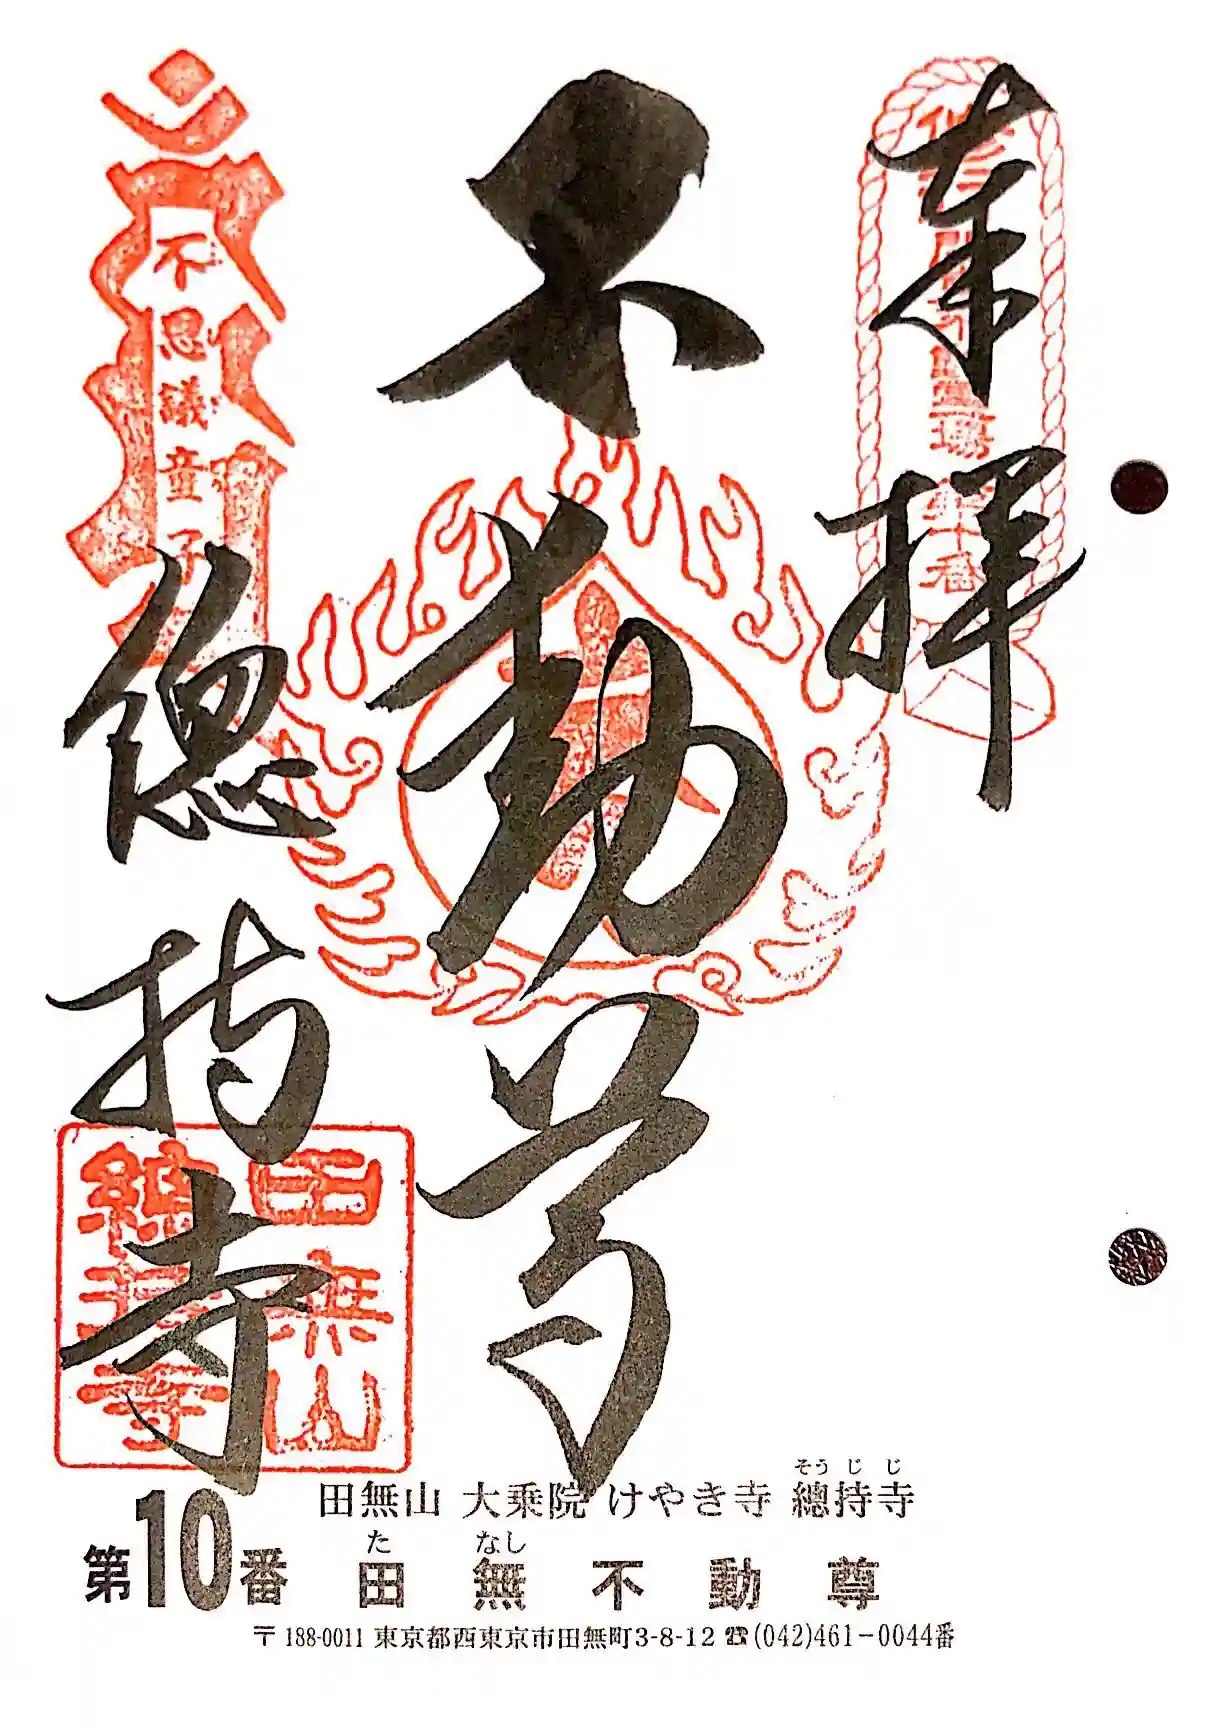 奉拝
不動尊
總持寺
不思議童子
田無山
總持寺
田無山 大乗院 けやき寺 總持寺
そうじじ
第10番 田無不動尊
たなし
〒188-0011 東京都西東京市田無町3-8-12 ☎(042)461-0044番